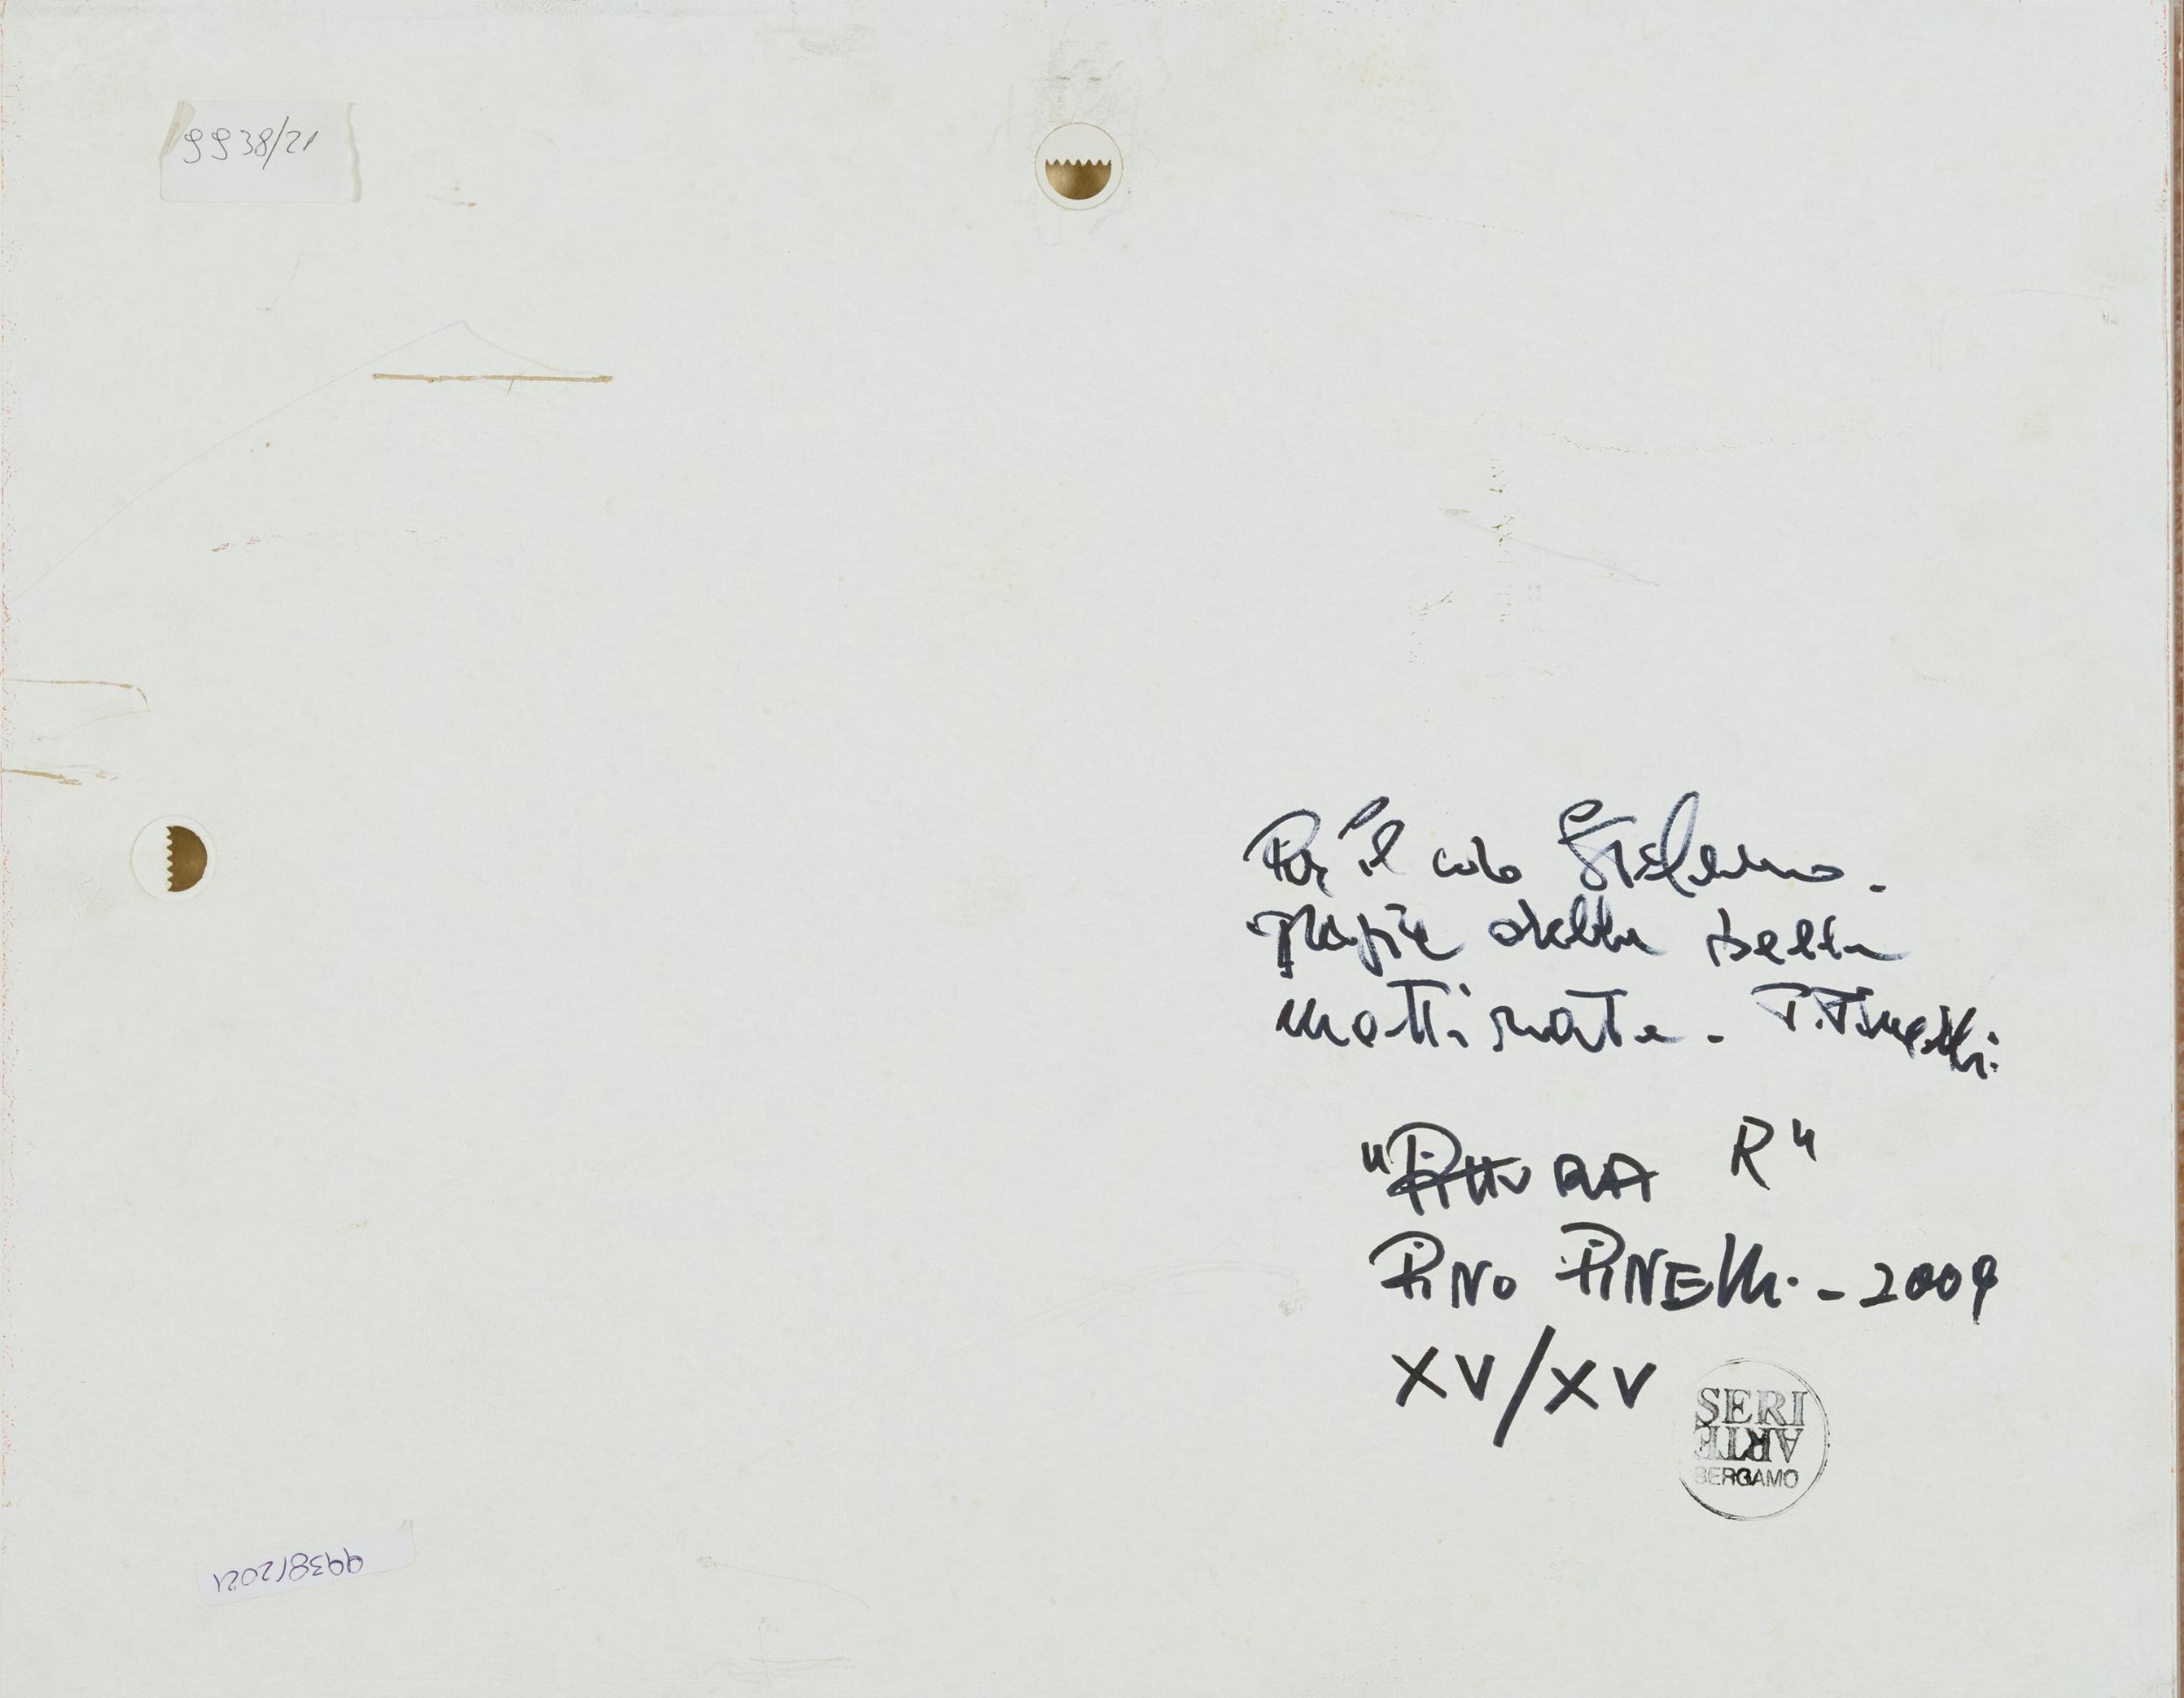 9938/21
Per il caro Stefano.
grazie della bella
mattinata. P. Pinelli.
"PITTURA R"
PINO PINELLI. - 2009
XV/XV
SERI
ARTE
BERGAMO
9938/2021